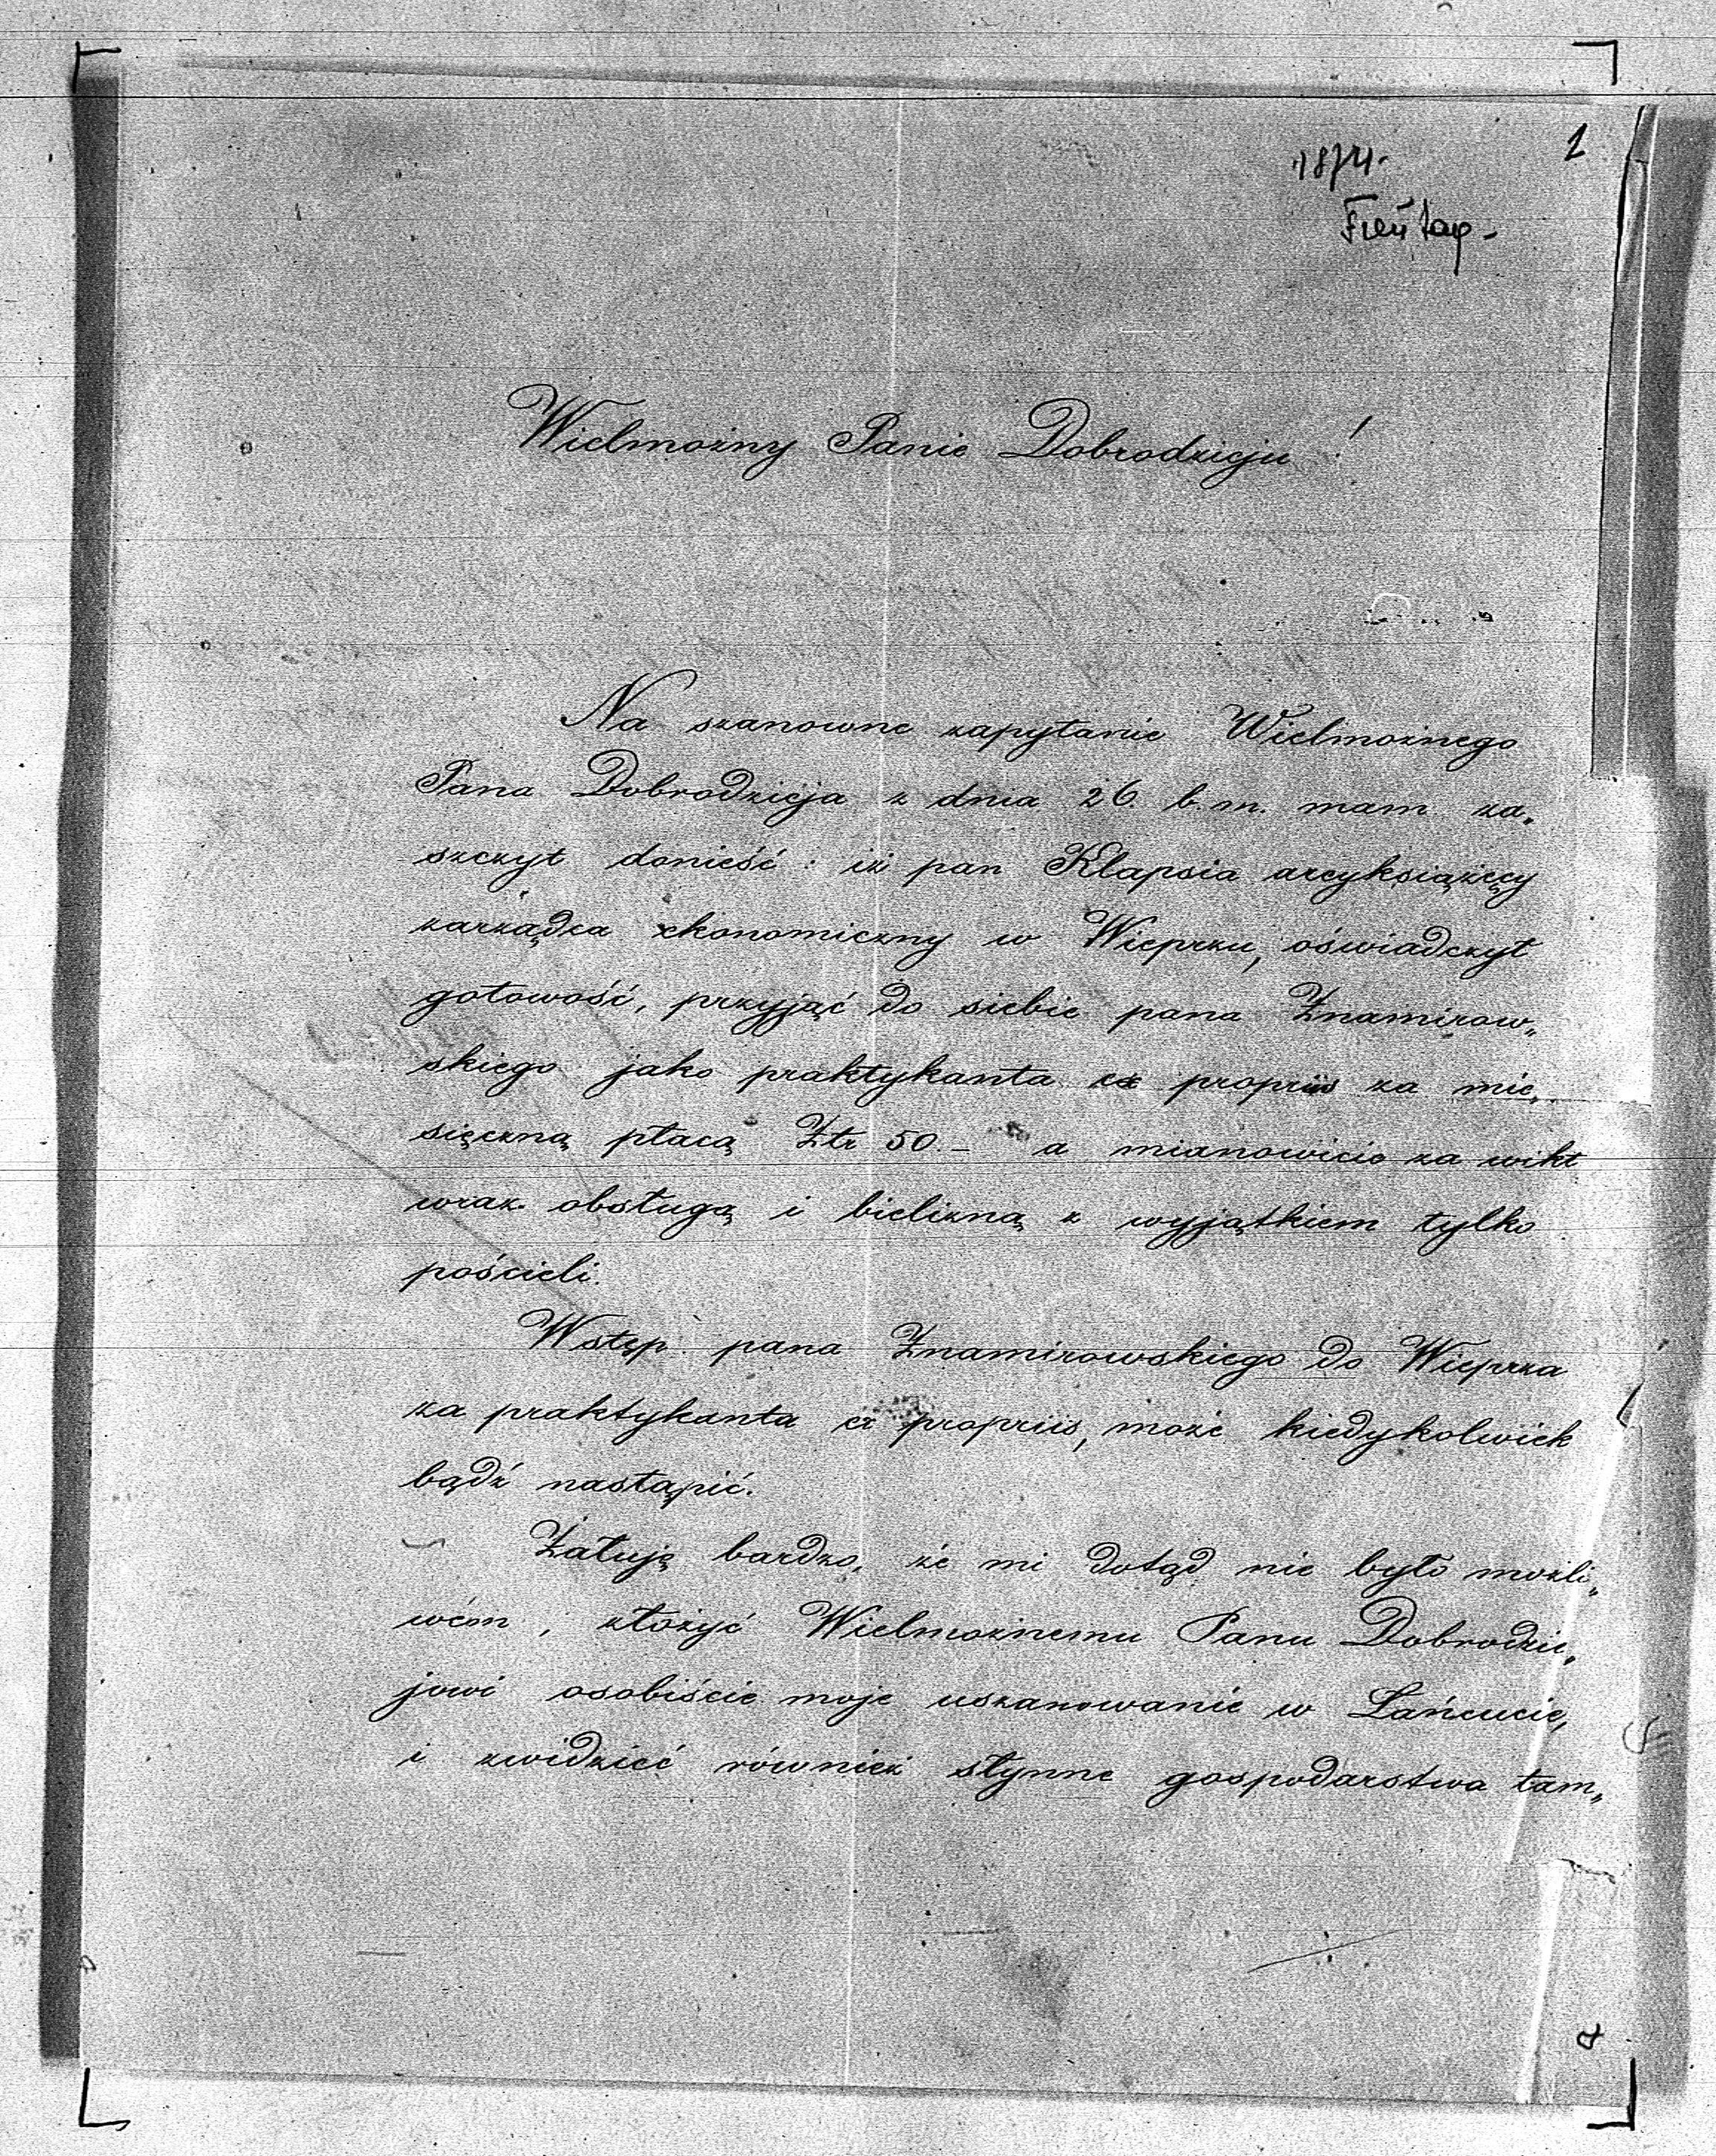 1
1874.
Freütag.
Wielmożny Panie Dobrodzieju!
Na szanowne zapytanie Wielmożnego
Pana Dobrodzieja z dnia 26 b.m. mam za„
szczyt donieść: iż pan Klapsia arcyksiążęcy
zarządca ekonomiczny w Wieprzu, oświadczył
gotowość, przyjąć do siebie pana Znamirow„
skiego jako praktykanta ex propriis za mie„
sięczną płacą Złr 50.– a mianowicie za wikt
wraz obsługą i bielizną z wyjątkiem tylko
pościeli.
Wstęp pana Znamirowskiego do Wieprza
za praktykanta ex propriis, może kiedykolwiek
bądź nastąpić.
Żałuję bardzo, że mi dotąd nie było możli„
wém, złożyć Wielmożnemu Panu Dobrodzie„
jowi osobiście moje uszanowanie w Łańcucie,
i zwidzieć również słynne gospodarstwa tam„